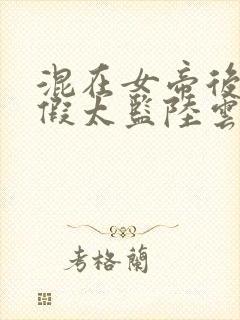 混在女帝後
假太監陸雲
考格蘭